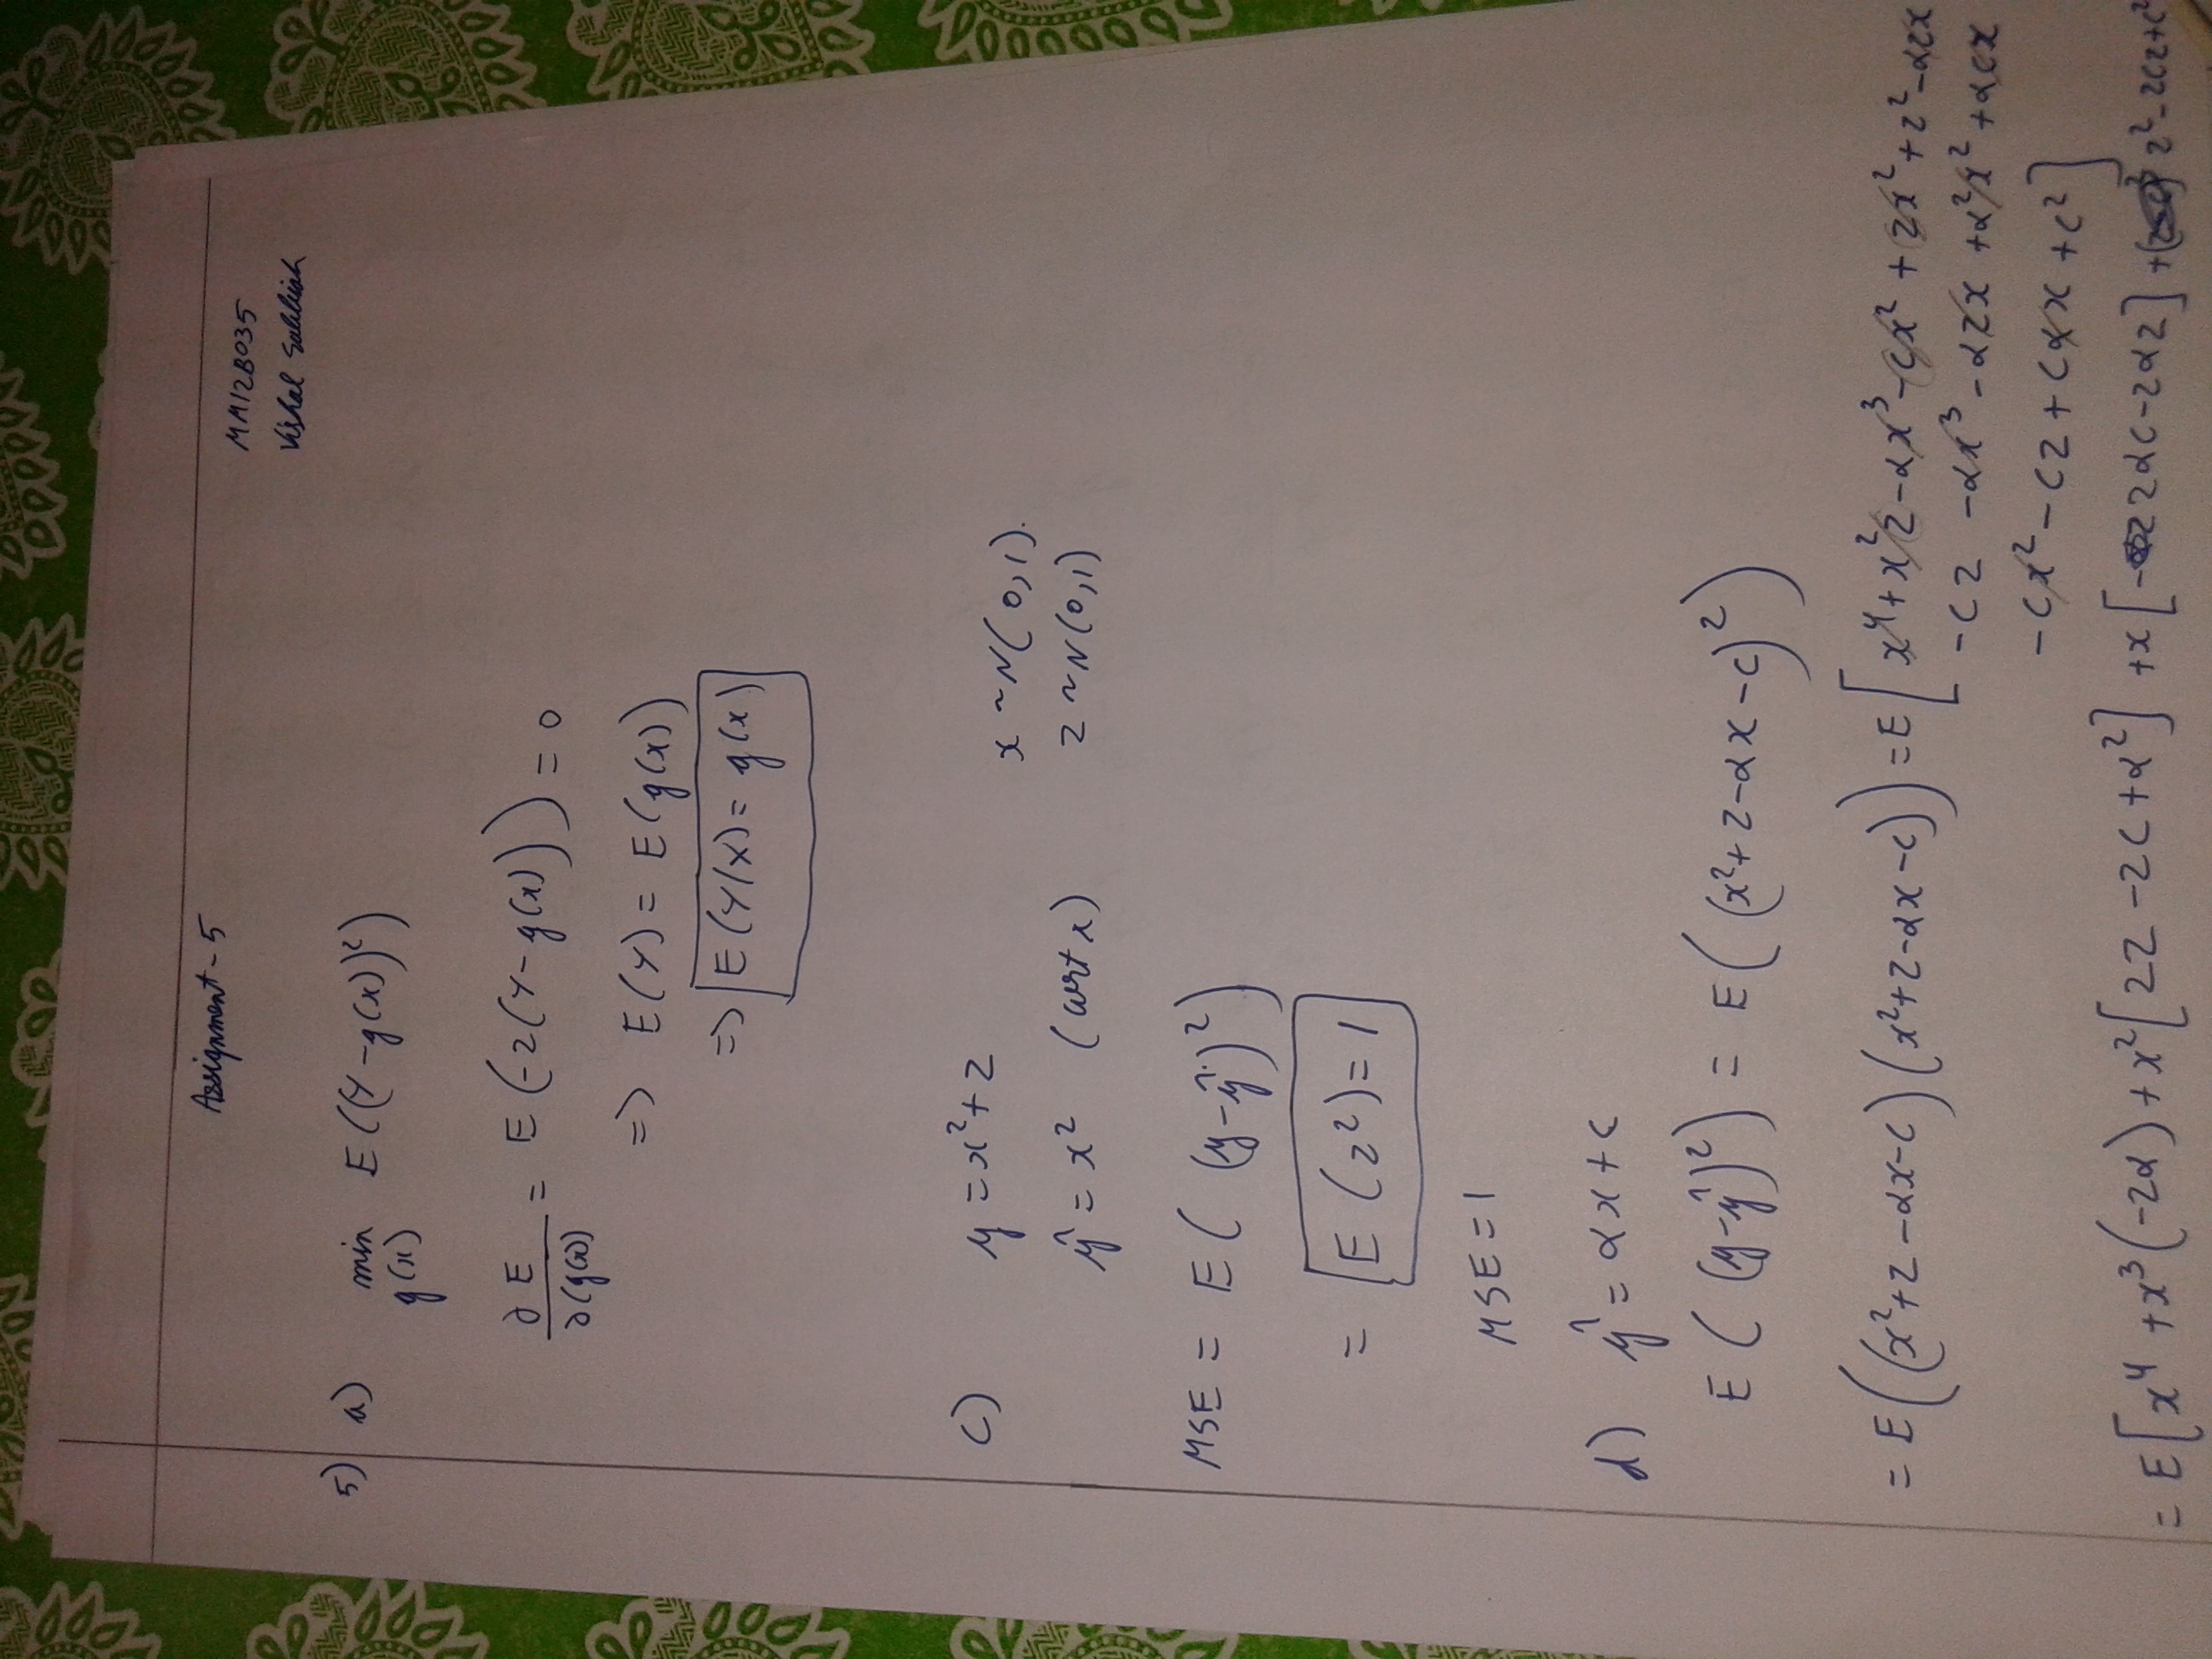 Assignment - 5
MM12B035
Vishal
5) a) min E((Y - g(x))²)
g(x)
∂E/∂(g(x)) = E(-2(Y - g(x))) = 0
=> E(Y) = E(g(x))
=> E(Y/X) = g(x)
c) y = x² + z x ~ N(0,1).
ŷ = x² (wrt x) z ~ N(0,1)
MSE = E((y - ŷ)²)
= E(z²) = 1
MSE = 1
d) ŷ = αx + c
E((y - ŷ)²) = E((x² + z - αx - c)²)
= E((x² + z - αx - c)(x² + z - αx - c)) = E[x⁴ + x²z - αx³ - cx² + zx² + z² - αzx
- cz - αx³ - αzx + α²x² + αcx
- cx² - cz + cαx + c²]
= E[x⁴ + x³(-2α) + x²[2z - 2c + α²] + x[2αc - 2αz] + z² - 2cz + c²